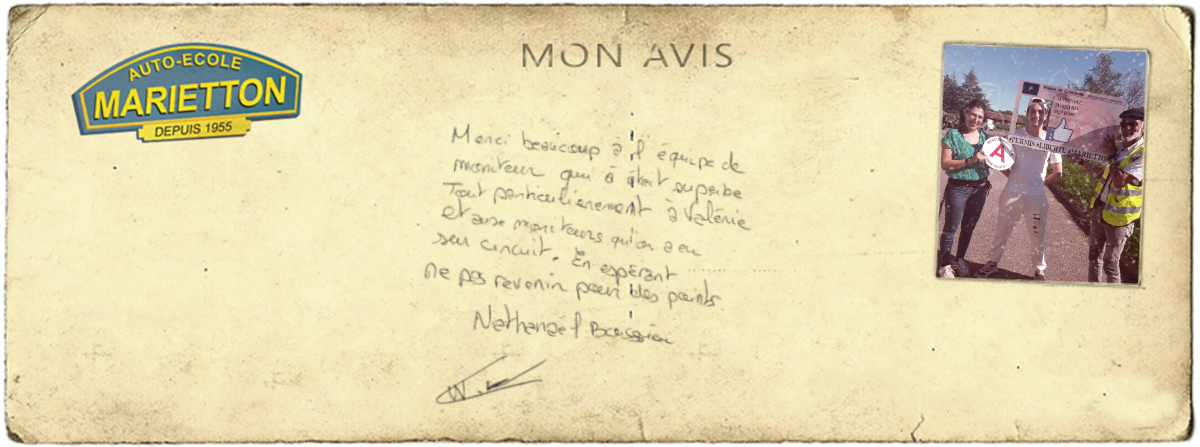 AUTO-ECOLE
MARIETTON
DEPUIS 1955
MON AVIS
Merci beaucoup à l'équipe de
moniteur qui à était superbe
Tout particulièrement à Valérie
et aux moniteurs qu'on a eu
sur circuit. En espérant
ne pas revenir pour des points
Nathanaël
P
#PERMIS #LIBERTÉ #MARIETTON
A